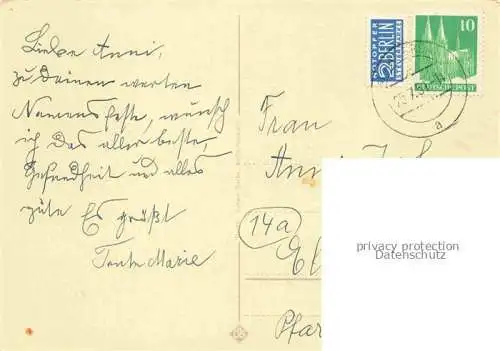 Liebe Anni,
zu Deinem werten
Namensfeste, wünsch
ich Das aller beste,
Gesundheit und alles
gute Es grüßt
Tante Marie
NOTOPFER
2 BERLIN
STEUERMARKE
10
DEUTSCHE POST
a
Frau
(14a)
privacy protection
Datenschutz